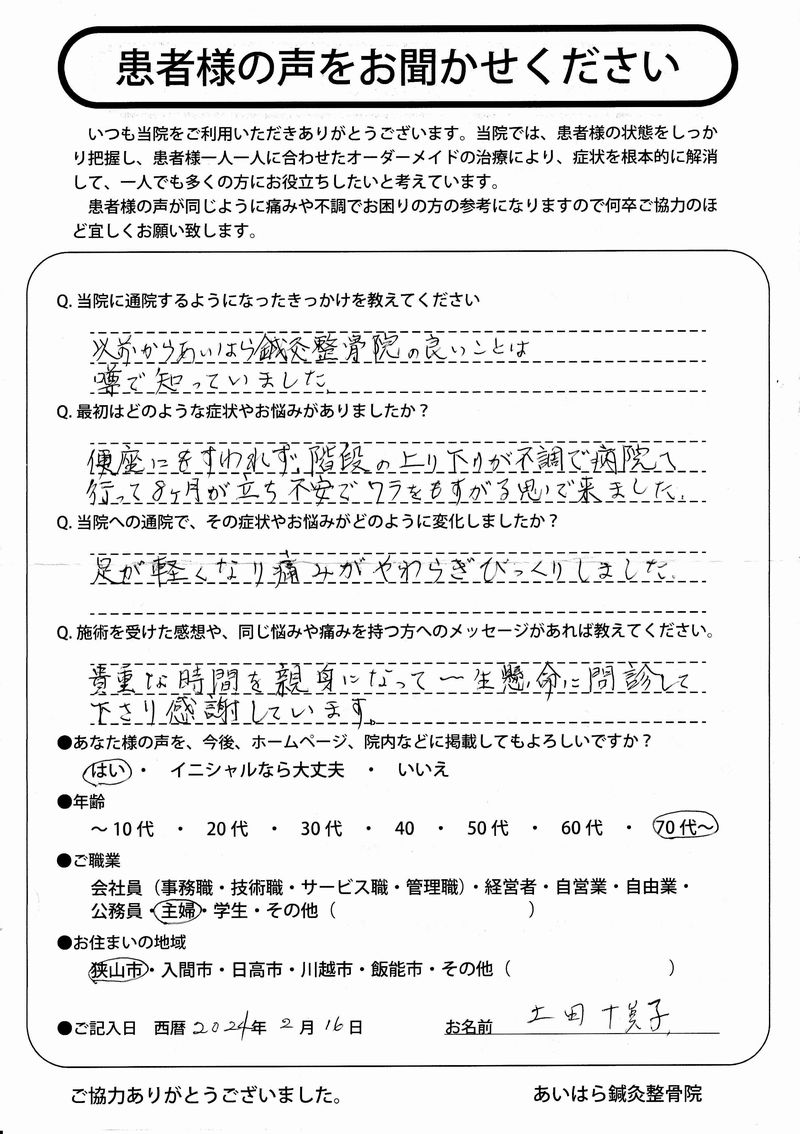 患者様の声をお聞かせください
いつも当院をご利用いただきありがとうございます。当院では、患者様の状態をしっか
り把握し、患者様一人一人に合わせたオーダーメイドの治療により、症状を根本的に解消
して、一人でも多くの方にお役立ちしたいと考えています。
患者様の声が同じように痛みや不調でお困りの方の参考になりますので何卒ご協力のほ
ど宜しくお願い致します。
Q. 当院に通院するようになったきっかけを教えてください
以前からあいはら鍼灸整骨院の良いことは
噂で知っていました。
Q. 最初はどのような症状やお悩みがありましたか？
便座にもすわれず、階段の上り下りが不調で病院へ
行って8ヶ月が立ち不安でワラをもすがる思いで来ました。
Q. 当院への通院で、その症状やお悩みがどのように変化しましたか？
足が軽くなり痛みがやわらぎびっくりしました。
Q. 施術を受けた感想や、同じ悩みや痛みを持つ方へのメッセージがあれば教えてください。
貴重な時間を親身になって一生懸命に問診して
下さり感謝しています。
●あなた様の声を、今後、ホームページ、院内などに掲載してもよろしいですか？
はい・ イニシャルなら大丈夫 ・ いいえ
●年齢
～10代 ・ 20代 ・ 30代 ・ 40 ・ 50代 ・ 60代 ・ 70代～
●ご職業
会社員（事務職・技術職・サービス職・管理職）・経営者・自営業・自由業・
公務員・主婦・学生・その他（ ）
●お住まいの地域
狭山市・入間市・日高市・川越市・飯能市・その他（ ）
●ご記入日 西暦 2024年 2月 16日 お名前 土田
ご協力ありがとうございました。 あいはら鍼灸整骨院